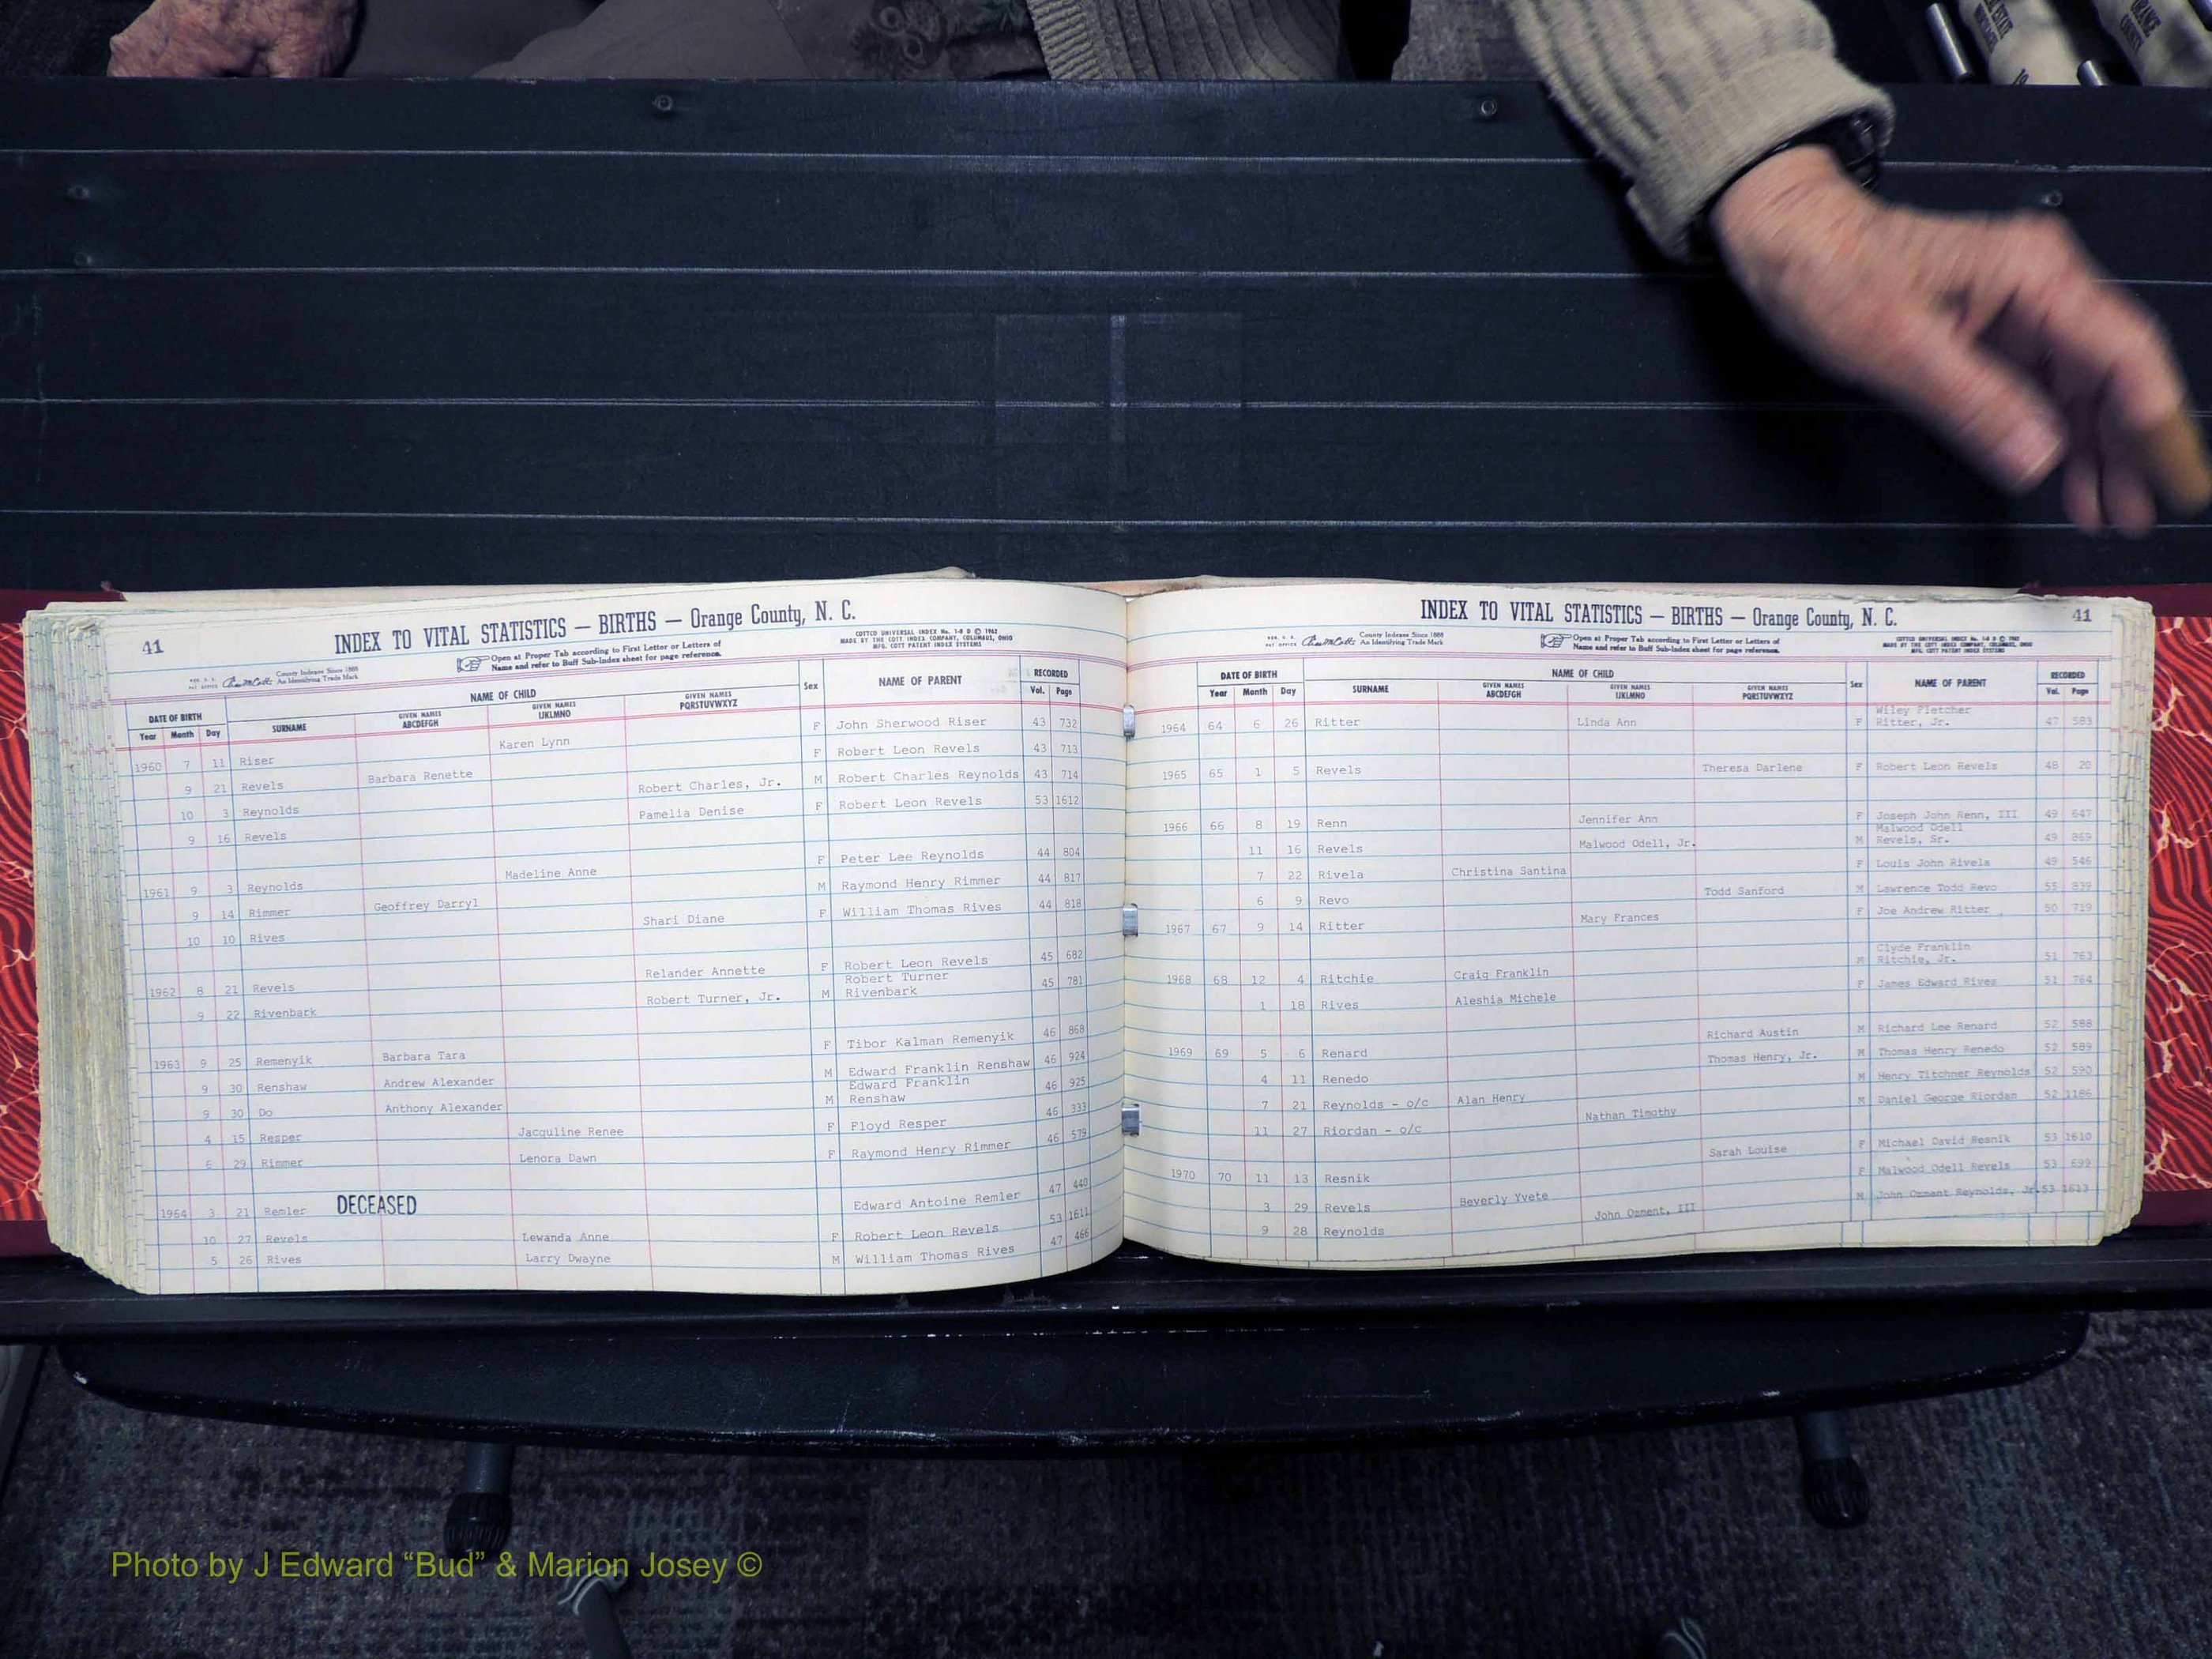 41
INDEX TO VITAL STATISTICS — BIRTHS — Orange County, N. C.
COTTCO UNIVERSAL INDEX No. 1-8 D © 1962
MADE BY THE COTT INDEX COMPANY, COLUMBUS, OHIO
MFG. COTT PATENT INDEX SYSTEMS
County Indexes Since 1888
An Identifying Trade Mark
Open at Proper Tab according to First Letter or Letters of
Name and refer to Buff Sub-Index sheet for page reference.
DATE OF BIRTH NAME OF CHILD Sex NAME OF PARENT RECORDED
Year Month Day SURNAME GIVEN NAMES ABCDEFGH GIVEN NAMES IJKLMNO GIVEN NAMES PQRSTUVWXYZ Vol. Page
1960 7 11 Riser Karen Lynn F John Sherwood Riser 43 732
9 21 Revels Barbara Renette F Robert Leon Revels 43 713
10 3 Reynolds Robert Charles, Jr. M Robert Charles Reynolds 43 714
9 16 Revels Pamelia Denise F Robert Leon Revels 53 1612
1961 9 3 Reynolds Madeline Anne F Peter Lee Reynolds 44 804
9 14 Rimmer Geoffrey Darryl M Raymond Henry Rimmer 44 817
10 10 Rives Shari Diane F William Thomas Rives 44 818
1962 8 21 Revels Relander Annette F Robert Leon Revels 45 682
9 22 Rivenbark Robert Turner, Jr. M Robert Turner Rivenbark 45 781
1963 9 25 Remenyik Barbara Tara F Tibor Kalman Remenyik 46 868
9 30 Renshaw Andrew Alexander M Edward Franklin Renshaw 46 924
9 30 Do Anthony Alexander M Edward Franklin Renshaw 46 925
4 15 Resper Jacquline Renee F Floyd Resper 46 333
6 29 Rimmer Lenora Dawn F Raymond Henry Rimmer 46 579
1964 3 21 Remler DECEASED Edward Antoine Remler 47 440
10 27 Revels Lewanda Anne F Robert Leon Revels 53 1611
5 26 Rives Larry Dwayne M William Thomas Rives 47 466
INDEX TO VITAL STATISTICS — BIRTHS — Orange County, N. C.
41
County Indexes Since 1888
An Identifying Trade Mark
Open at Proper Tab according to First Letter or Letters of
Name and refer to Buff Sub-Index sheet for page reference.
COTTCO UNIVERSAL INDEX No. 1-8 D © 1962
MADE BY THE COTT INDEX COMPANY, COLUMBUS, OHIO
MFG. COTT PATENT INDEX SYSTEMS
DATE OF BIRTH NAME OF CHILD Sex NAME OF PARENT RECORDED
Year Month Day SURNAME GIVEN NAMES ABCDEFGH GIVEN NAMES IJKLMNO GIVEN NAMES PQRSTUVWXYZ Vol. Page
1964 64 6 26 Ritter Linda Ann F Wiley Fletcher Ritter, Jr. 47 583
1965 65 1 5 Revels Theresa Darlene F Robert Leon Revels 48 20
1966 66 8 19 Renn Jennifer Ann F Joseph John Renn, III 49 647
11 16 Revels Malwood Odell, Jr. M Malwood Odell Revels, Sr. 49 869
7 22 Rivela Christina Santina F Louis John Rivela 49 546
6 9 Revo Todd Sanford M Lawrence Todd Revo 55 839
1967 67 9 14 Ritter Mary Frances F Joe Andrew Ritter 50 719
1968 68 12 4 Ritchie Craig Franklin M Clyde Franklin Ritchie, Jr. 51 763
1 18 Rives Aleshia Michele F James Edward Rives 51 764
1969 69 5 6 Renard Richard Austin M Richard Lee Renard 52 588
4 11 Renedo Thomas Henry, Jr. M Thomas Henry Renedo 52 589
7 21 Reynolds - o/c Alan Henry M Henry Titchner Reynolds 52 590
11 27 Riordan - o/c Nathan Timothy M Daniel George Riordan 52 1186
1970 70 11 13 Resnik Sarah Louise F Michael David Resnik 53 1610
3 29 Revels Beverly Yvete F Malwood Odell Revels 53 699
9 28 Reynolds John Ozment, III M John Ozment Reynolds, Jr. 53 1613
Photo by J Edward “Bud” & Marion Josey ©